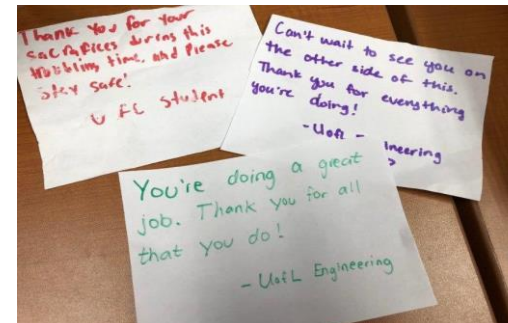 Thank You for Your
sacrafices during this
troubling time, and Please
stay safe!
student
Can't wait to see you on
the other side of this.
Thank you for everything
you're doing!
- UofL -
ineering
You're doing a great
job. Thank you for all
that you do!
- UofL Engineering